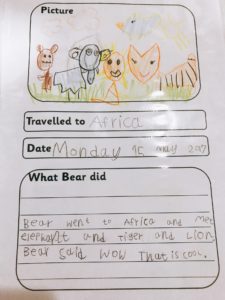 Picture
Travelled to Africa
Date Monday 15 May 2017
What Bear did
Bear went to Africa and met
elephant and Tiger and Lion
Bear said wow That is cool.